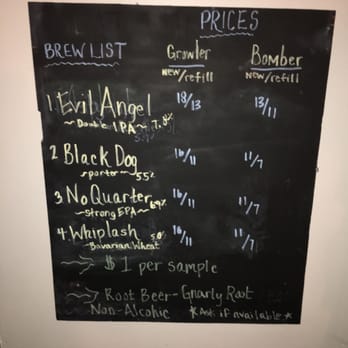 PRICES
BREW LIST Growler Bomber
new/refill new/refill
1. Evil Angel 18/13 13/11
~Double IPA~ 7.8%
2 Black Dog 16/11 11/7
~porter~ 5.5%
3 No Quarter 16/11 11/7
~Strong EPA~
4. Whiplash 5.0% 16/11 11/7
Bavarian Wheat
$1 per sample
Root Beer - Gnarly Root
Non-Alcohic *Ask if available*